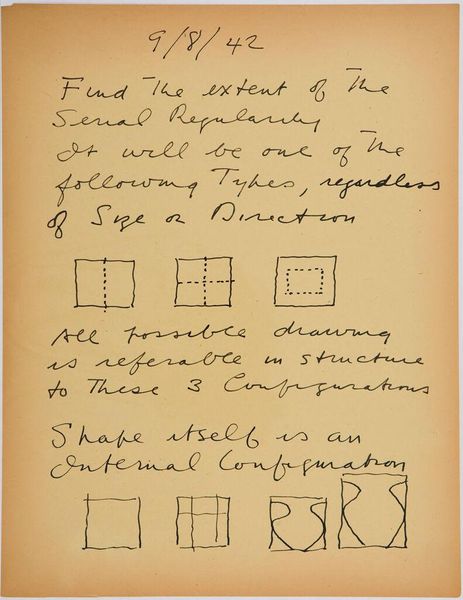 9/8/42
Find The extent of The
Serial Regularity
It will be one of The
following Types, regardless
of Size or Direction
All possible drawing
is referable in structure
to These 3 Configurations
Shape itself is an
Internal Configuration